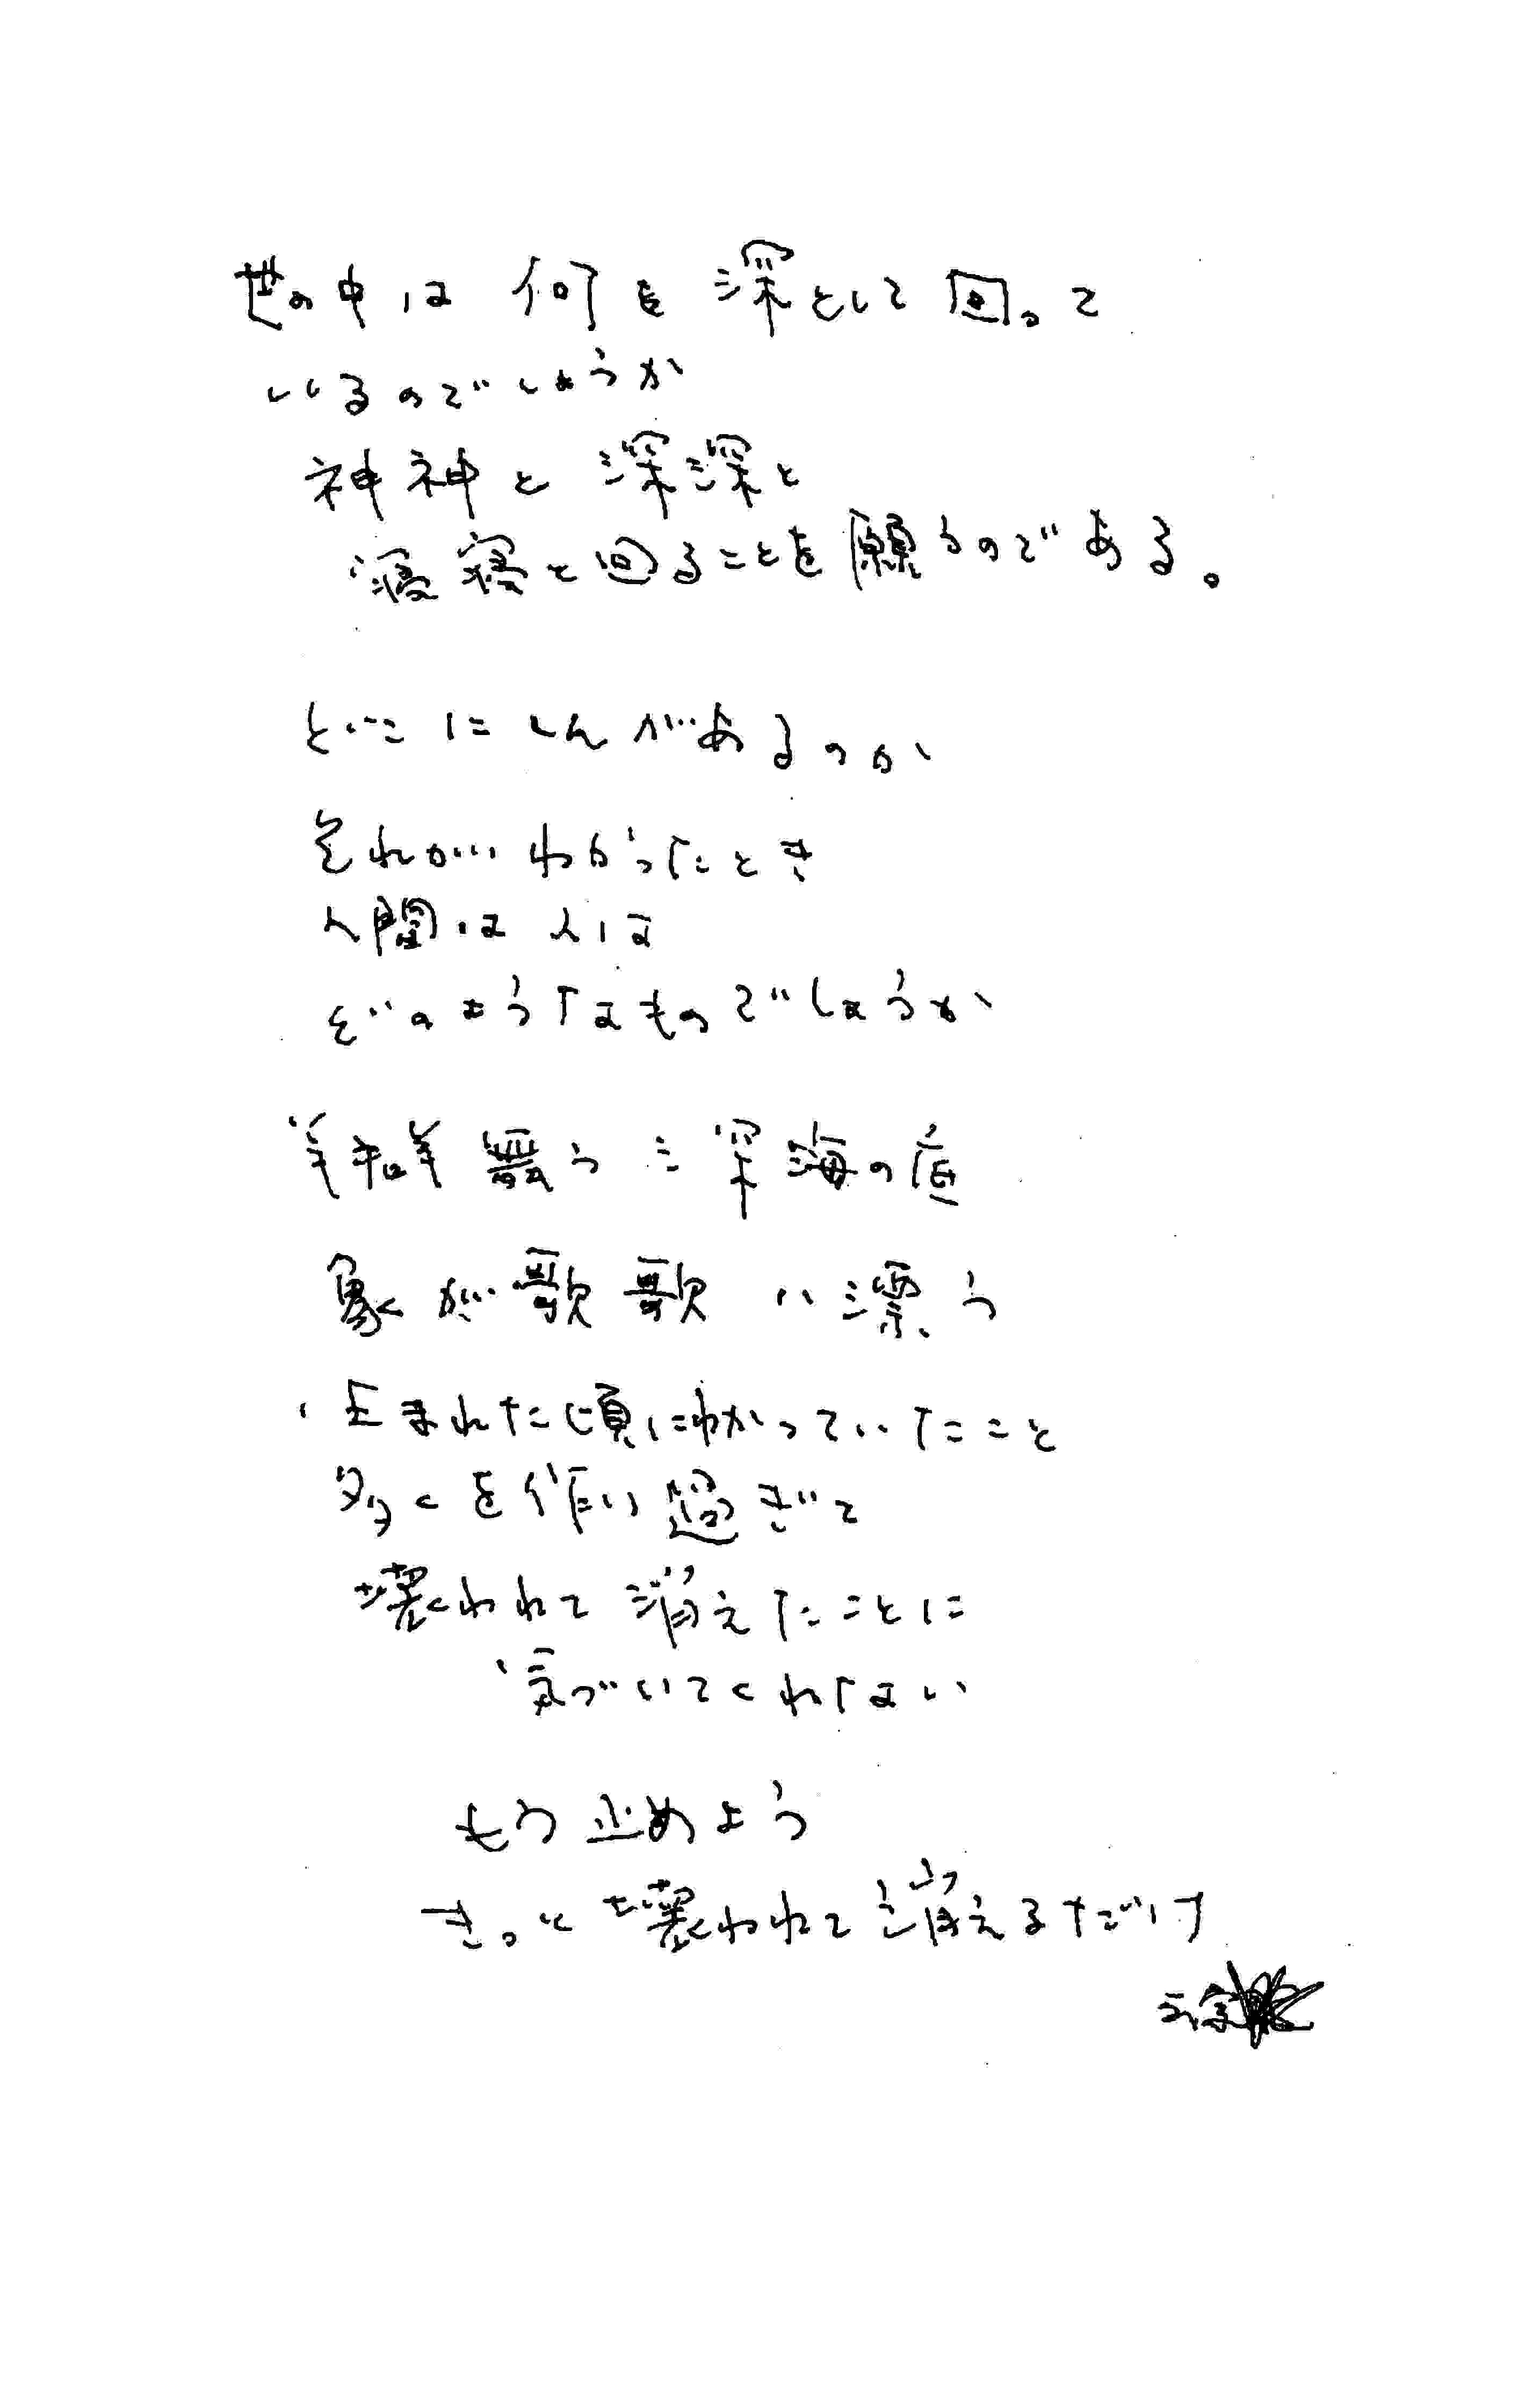 世の中は何を深として回って
いるのでしょうか
神神と深深と
寝寝と回ることを願うのである。
どこにしんがあるのか
それがわかったとき
人間は人は
どのようなものでしょうか
羊舞う深海の底
象が歌歌い漂う
生まれた頃にわかっていたこと
多くを作り過ぎて
壊われて消えたことに
気づいてくれない
もう止めよう
きっと壊われて消えるだけ